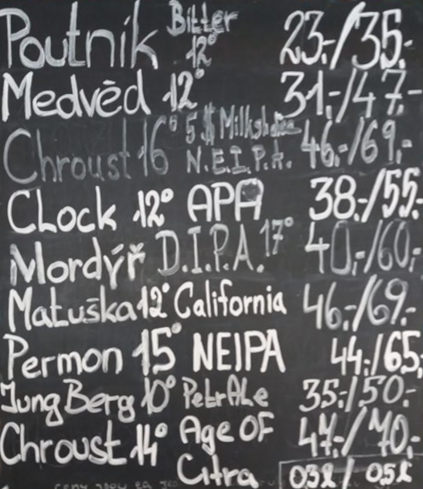 Poutník Bitter 12° 23,-/35,-
Medvěd 12° 31,-/47,-
Chroust 16° 5$ Milkshake N.E.I.P.A. 46,-/69,-
CLock 12° APA 38,-/55,-
Mordýř D.I.P.A. 17° 40,-/60,-
Matuška 12° California 46,-/69,-
Permon 15° NEIPA 44,-/65,
Jung Berg 10° PetrAle 35,-/50,-
Chroust 14° Age OF Citra 47,-/70,-
03l / 05l